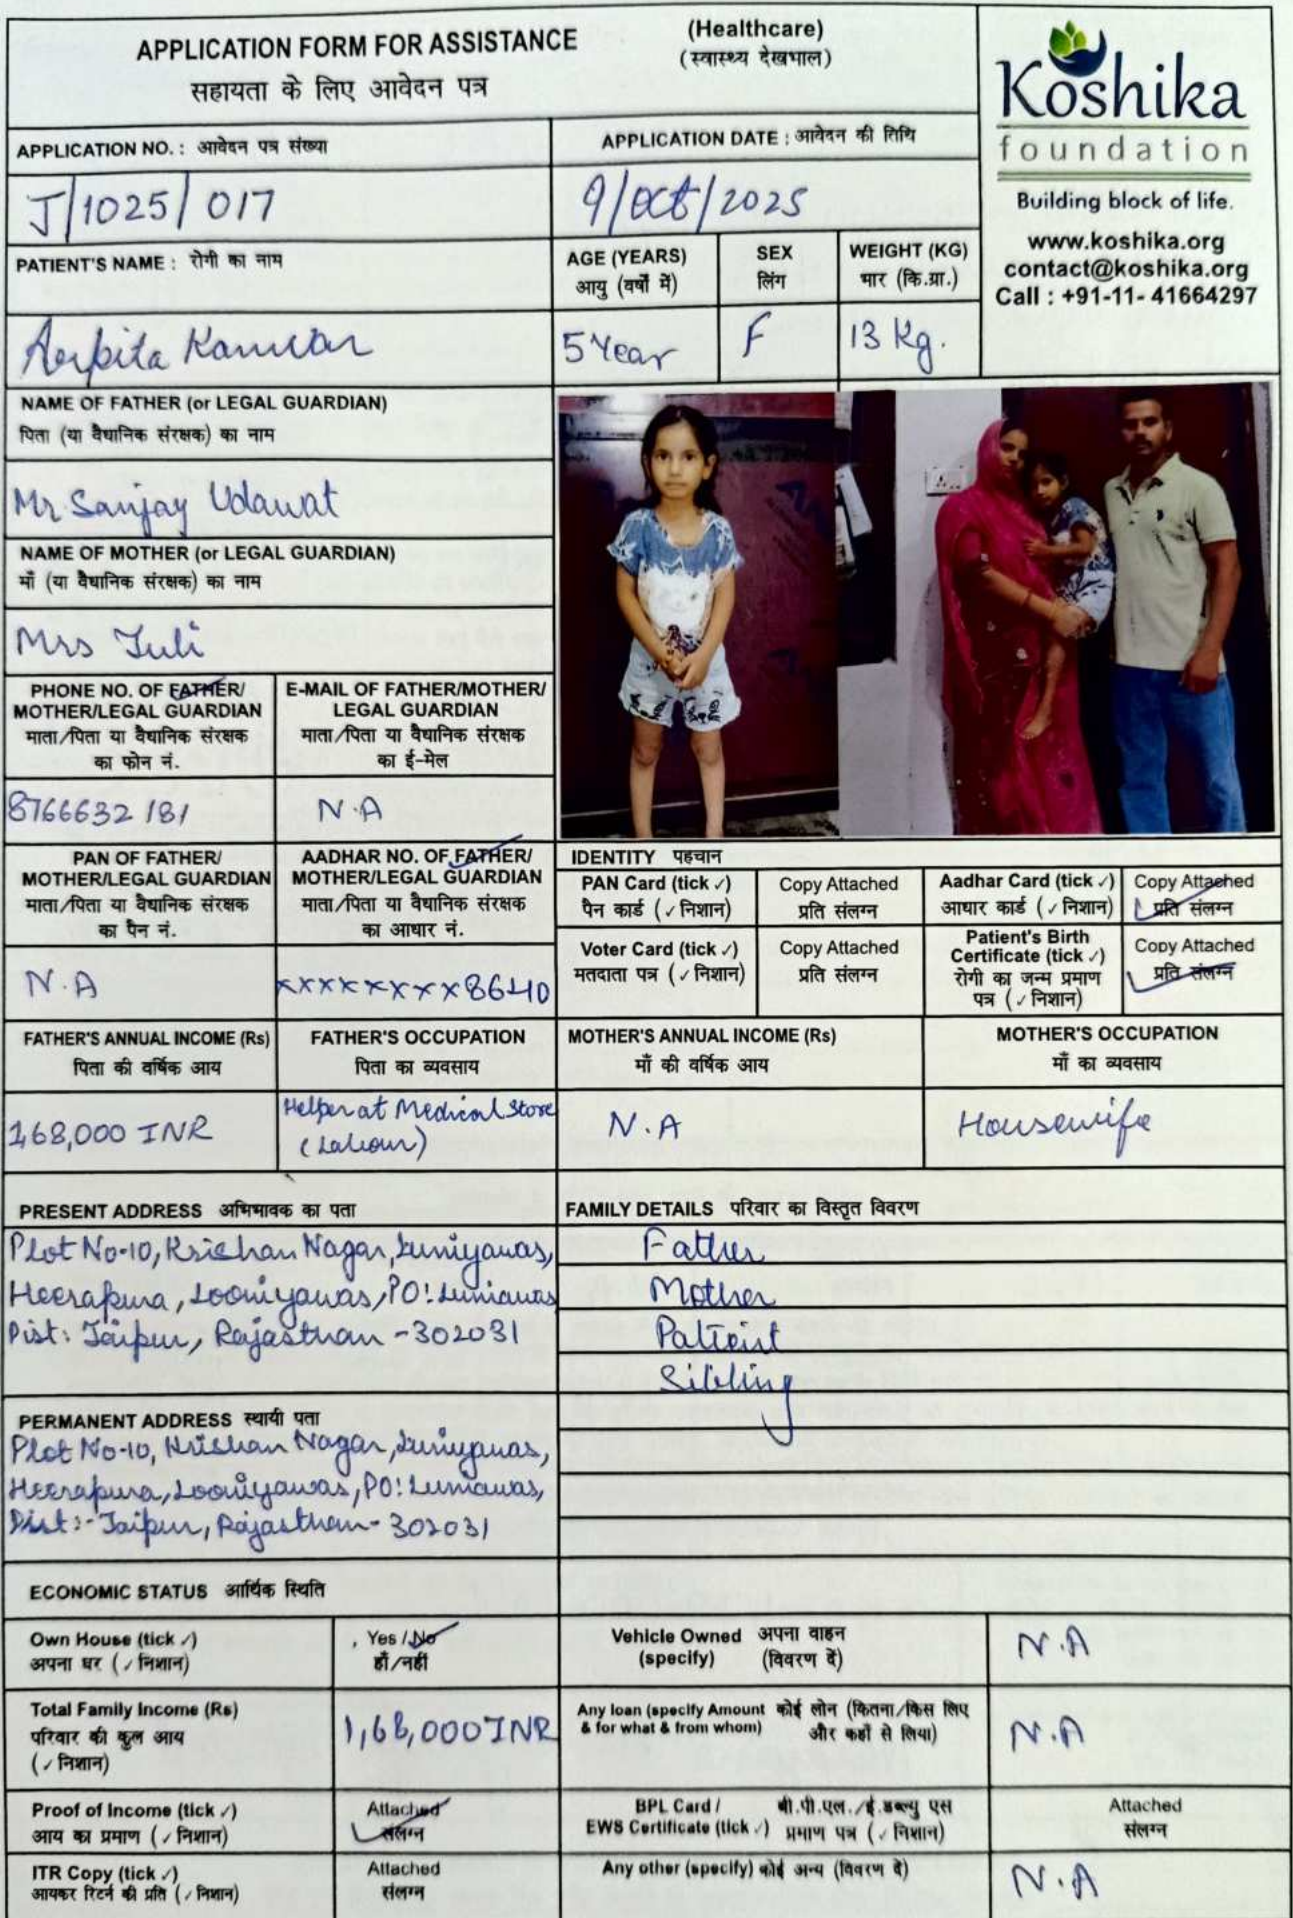 APPLICATION FORM FOR ASSISTANCE
(Healthcare)
(स्वास्थ्य देखभाल)
सहायता के लिए आवेदन पत्र
Koshika
foundation
Building block of life.
www.koshika.org
contact@koshika.org
Call : +91-11- 41664297
APPLICATION NO. : आवेदन पत्र संख्या
APPLICATION DATE : आवेदन की तिथि
J/1025/017
9/Oct/2025
PATIENT'S NAME : रोगी का नाम
AGE (YEARS)
आयु (वर्षों में)
SEX
लिंग
WEIGHT (KG)
भार (कि.ग्रा.)
Arpita Kanwar
5 Year
F
13 Kg.
NAME OF FATHER (or LEGAL GUARDIAN)
पिता (या वैधानिक संरक्षक) का नाम
Mr Sanjay Udawat
NAME OF MOTHER (or LEGAL GUARDIAN)
माँ (या वैधानिक संरक्षक) का नाम
Mrs Juli
PHONE NO. OF FATHER/
MOTHER/LEGAL GUARDIAN
माता/पिता या वैधानिक संरक्षक
का फोन नं.
E-MAIL OF FATHER/MOTHER/
LEGAL GUARDIAN
माता/पिता या वैधानिक संरक्षक
का ई-मेल
8766632181
N.A
PAN OF FATHER/
MOTHER/LEGAL GUARDIAN
माता/पिता या वैधानिक संरक्षक
का पैन नं.
AADHAR NO. OF FATHER/
MOTHER/LEGAL GUARDIAN
माता/पिता या वैधानिक संरक्षक
का आधार नं.
N.A
xxxxxxxx8640
IDENTITY पहचान
PAN Card (tick ✓)
पैन कार्ड (✓ निशान)
Copy Attached
प्रति संलग्न
Aadhar Card (tick ✓)
आधार कार्ड (✓ निशान)
Copy Attached
प्रति संलग्न
Voter Card (tick ✓)
मतदाता पत्र (✓ निशान)
Copy Attached
प्रति संलग्न
Patient's Birth
Certificate (tick ✓)
रोगी का जन्म प्रमाण
पत्र (✓ निशान)
Copy Attached
प्रति संलग्न
FATHER'S ANNUAL INCOME (Rs)
पिता की वर्षिक आय
FATHER'S OCCUPATION
पिता का व्यवसाय
MOTHER'S ANNUAL INCOME (Rs)
माँ की वर्षिक आय
MOTHER'S OCCUPATION
माँ का व्यवसाय
168,000 INR
Helper at Medical Store
(Labour)
N.A
Housewife
PRESENT ADDRESS अभिभावक का पता
Plot No-10, Krishan Nagar, Luniyawas,
Heerapura, Looniyawas, PO: Luniawas
Dist: Jaipur, Rajasthan - 302031
FAMILY DETAILS परिवार का विस्तृत विवरण
Father
Mother
Patient
Sibling
PERMANENT ADDRESS स्थायी पता
Plot No-10, Krishan Nagar, Luniyawas,
Heerapura, Looniyawas, PO: Luniawas,
Dist:- Jaipur, Rajasthan- 302031
ECONOMIC STATUS आर्थिक स्थिति
Own House (tick ✓)
अपना घर (✓ निशान)
Yes / No
हाँ/नहीं
Vehicle Owned अपना वाहन
(specify) (विवरण दें)
N.A
Total Family Income (Rs)
परिवार की कुल आय
(✓ निशान)
1,68,000 INR
Any loan (specify Amount कोई लोन (कितना/किस लिए
& for what & from whom) और कहाँ से लिया)
N.A
Proof of Income (tick ✓)
आय का प्रमाण (✓ निशान)
Attached
संलग्न
BPL Card / बी.पी.एल./ई.डब्ल्यु एस
EWS Certificate (tick ✓) प्रमाण पत्र (✓ निशान)
Attached
संलग्न
ITR Copy (tick ✓)
आयकर रिटर्न की प्रति (✓ निशान)
Attached
संलग्न
Any other (specify) कोई अन्य (विवरण दें)
N.A